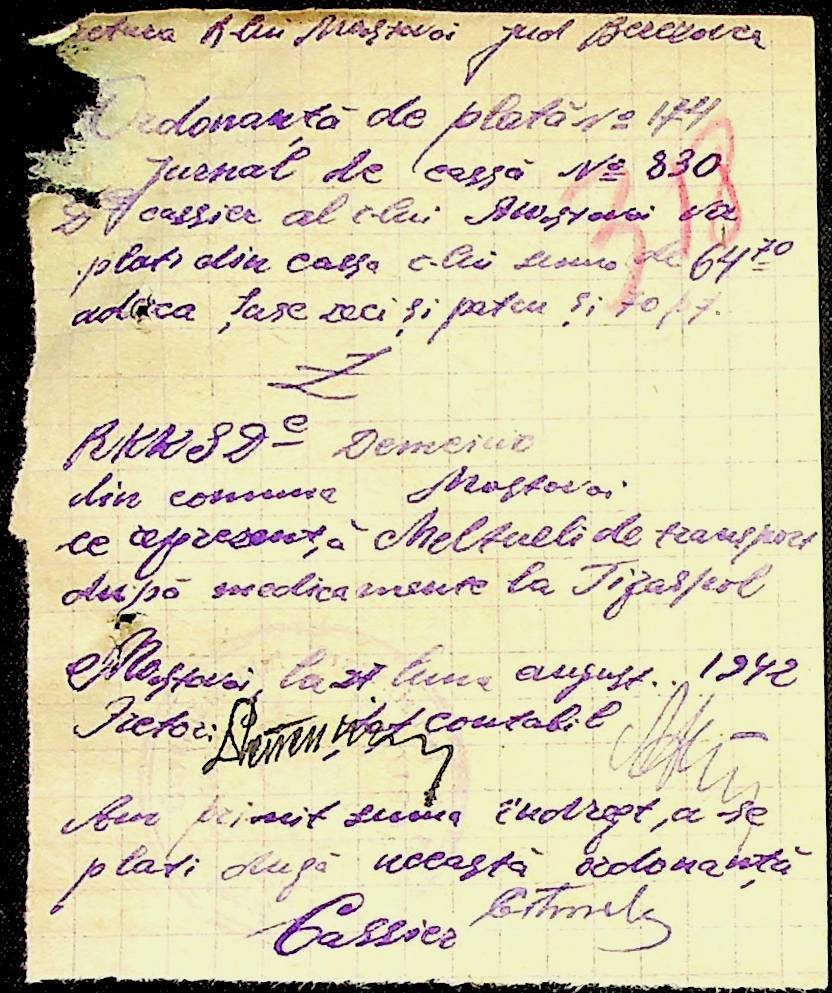 etura R-lui Moștovoi jud Berezovca
Ordonanță de plată № 174
Jurnal de cassă № 830
318
D cassier al c-lui Moștovoi va
plati din cassa c-lui suma de 64 70
adica șase zeci și patru și 70 pf.
din comuna Moștovoi
ce reprezență de transport
după medicamente la Tiraspol
Moștovoi, la 27 luna august.. 1942
Pretor Șef contabil
Am primit suma îndrept, a-se
plati după această ordonanță
Cassier